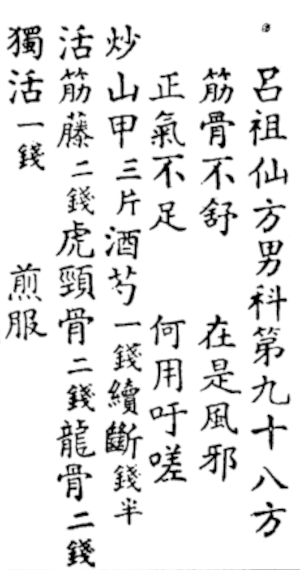 呂祖仙方男科第九十八方
筋骨不舒 在是風邪
正氣不足 何用吁嗟
炒山甲三片酒芍一錢續斷錢半
活筋藤二錢虎頸骨二錢龍骨二錢
獨活一錢 煎服